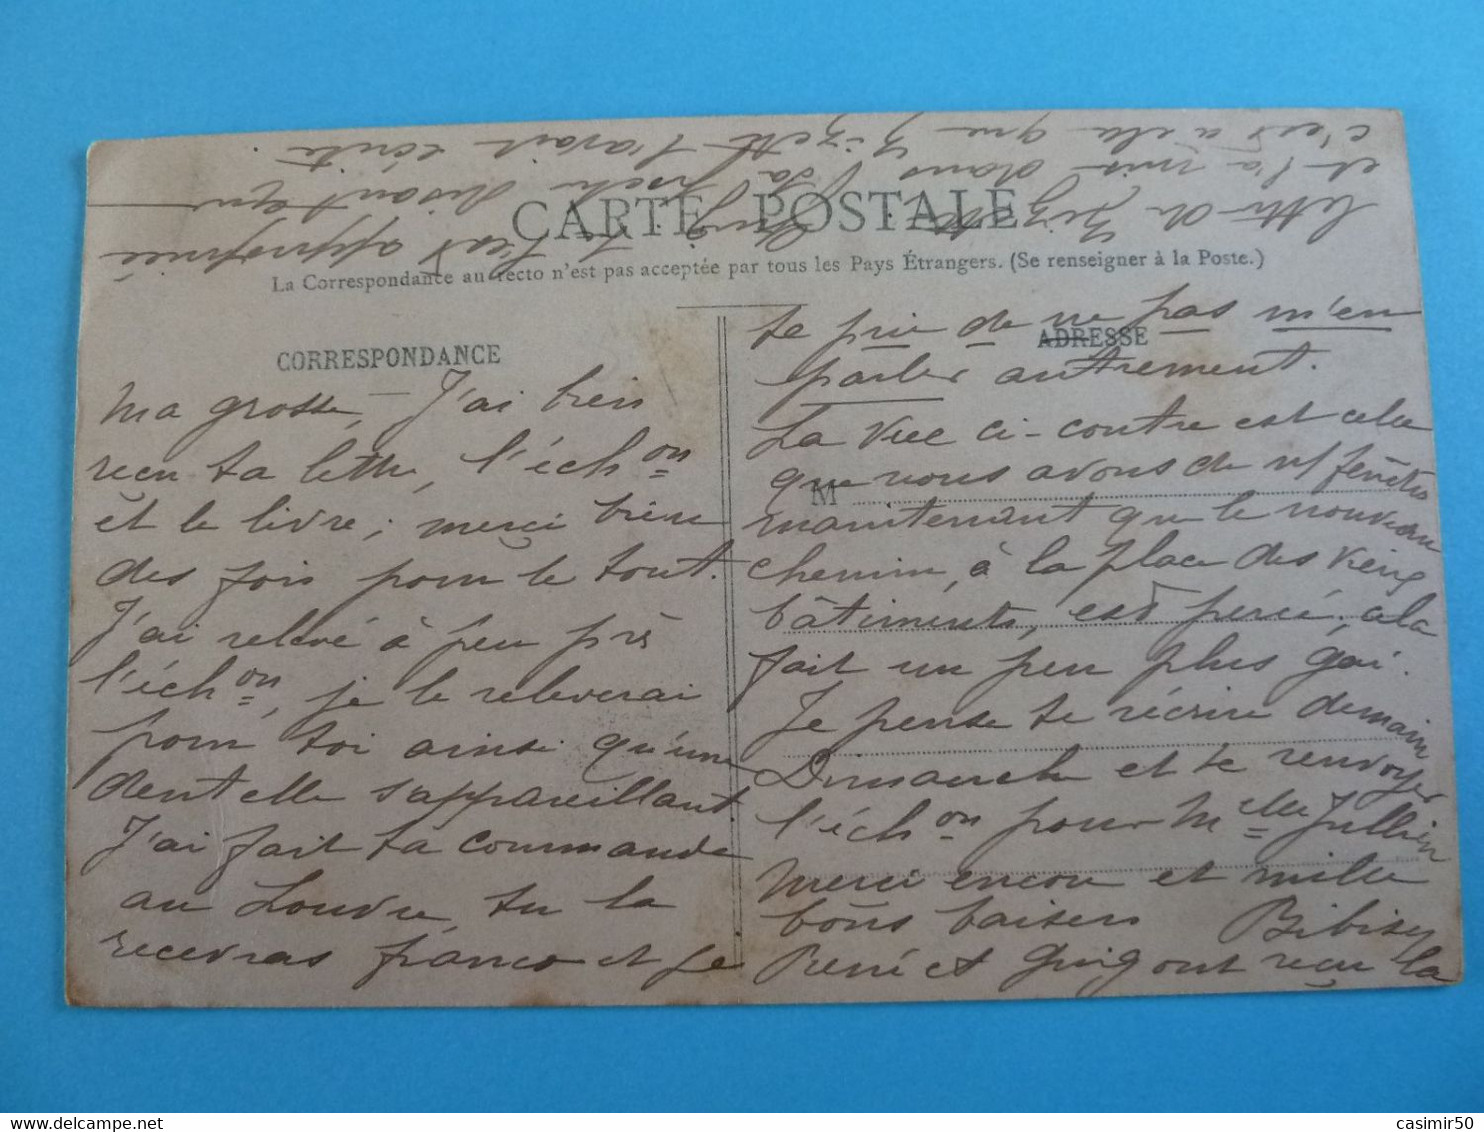 CARTE POSTALE
La Correspondance au recto n'est pas acceptée par tous les Pays Étrangers. (Se renseigner à la Poste.)
CORRESPONDANCE
Ma grosse, J'ai bien
reçu ta lettre, l'éch.on
et le livre; merci bien
des fois pour le tout.
J'ai relevé à peu près
l'éch.on, je le releverai
pour toi ainsi qu'une
dentelle s'appareillant.
J'ai fait ta commande
au Louvre, tu la
recevras franco et je
ADRESSE
M
te prie de ne pas m'en
parler autrement.
La vue ci-contre est celle
que nous avons de n/ fenêtre
maintenant que le nouveau
chemin, à la place des vieux
bâtiments, est percé, cela
fait un peu plus gai.
Je pense te récrire demain
Dimanche et te renvoyer
l'éch.on pour Melle Jullien
Merci encore et mille
bons baisers Bibisy
René et Guig ont reçu la
lettre de Zizette. Guig s'est approprié
et l'a mis dans sa poche disant que
c'est à elle que Zizette l'avait écrite.
casimir50